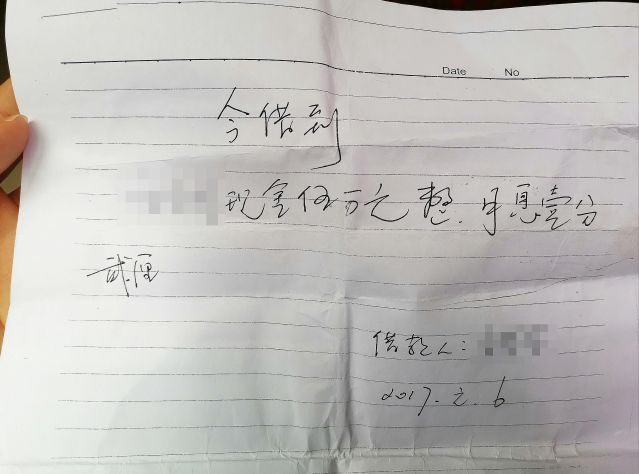 Date No
今借到
现金伍万元整.月息壹分
贰厘
借款人:
2017.2.6